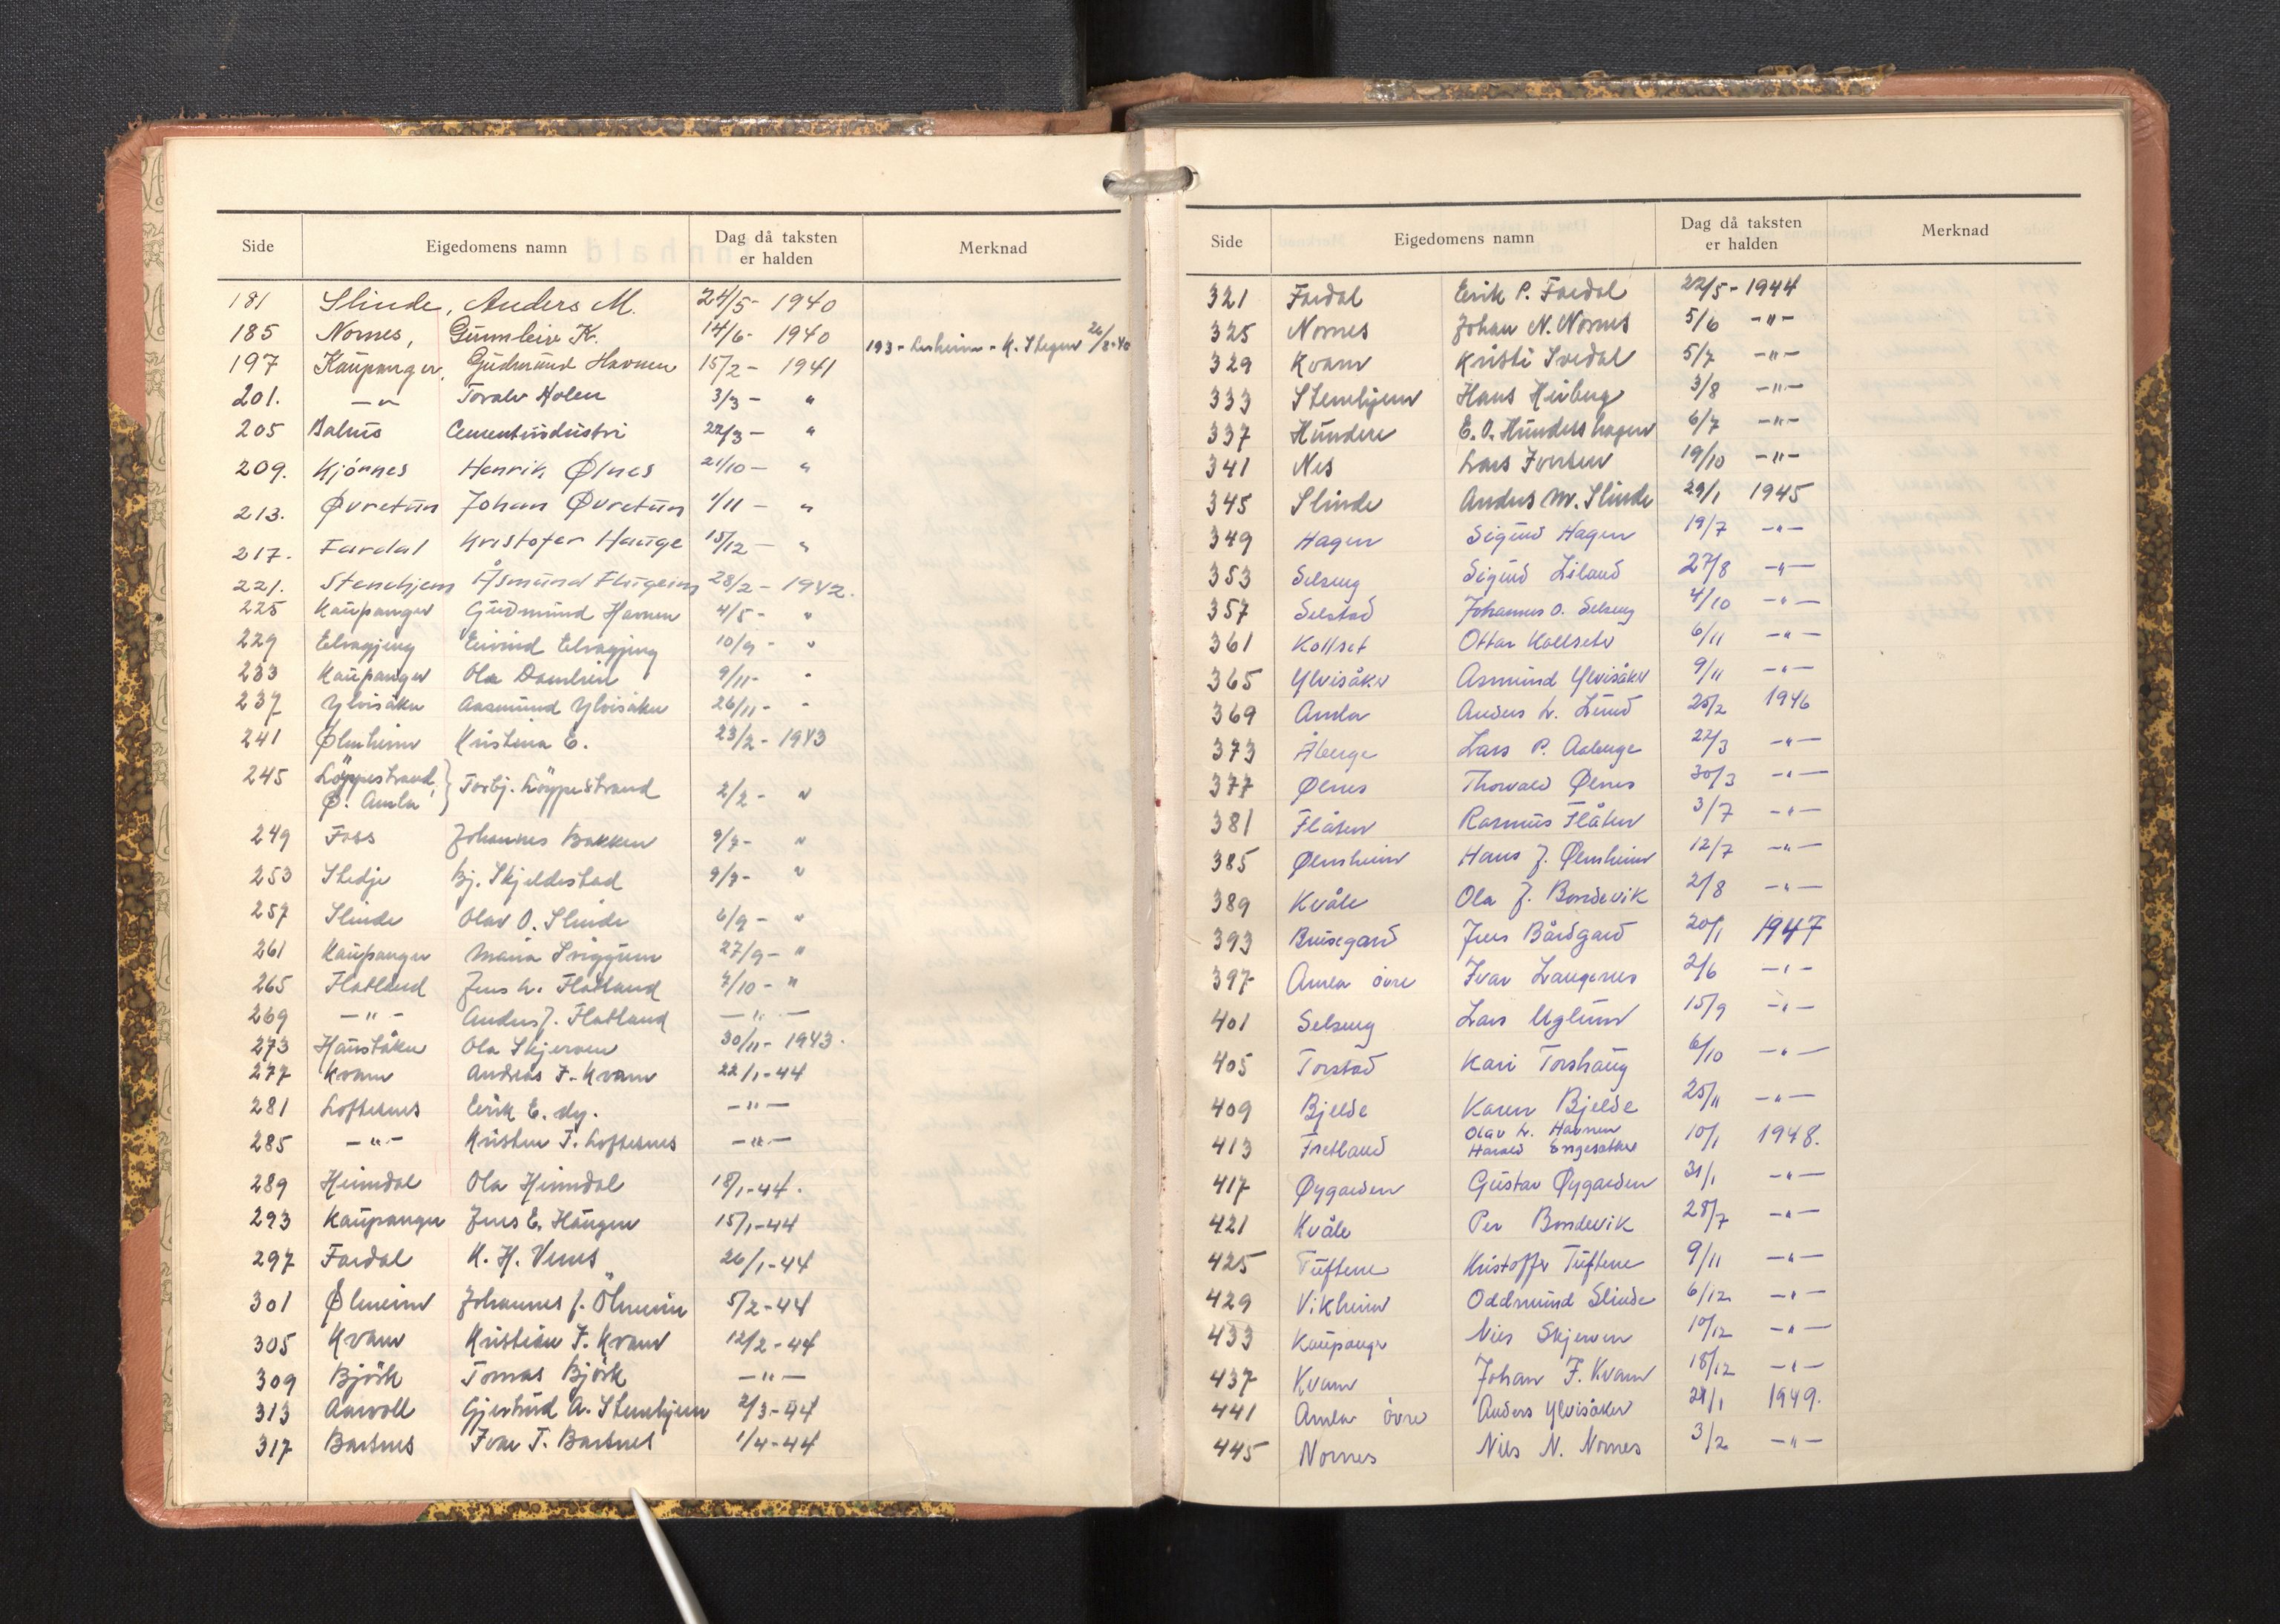 Side Eigedomens namn Dag då taksten er halden Merknad
181 Slinde, Anders M. 24/5- 1940
185 Nornes, Gunnleiv K. 14/6- 1940
193 - - K. Stegen 26/8-40
197 Kaupanger, Gudmund Havnen 15/2- 1941
201. —〃— Toralv Holen 3/3- 〃
205 Balnes Cementindustri 22/3- 〃
209. Kjörnes Henrik Ølnes 21/10- 〃
213. Øvretun Johan Øvretun 1/11- 〃
217. Fardal Kristofer Hauge 15/12- 〃
221. Stenehjem Åsmund Flugeim 28/2- 1942.
225 Kaupanger Gudmund Havnen 4/5- 〃
229 Elvagjeng Eivind Elvagjeng 10/9- 〃
233 Kaupanger Ola Damlien 9/11- 〃
237 Ylvisåker Aasmund Ylvisåker 26/11- 〃
241 Ølmheim Kristina E. 23/2- 1943
245 Löyppestrand, Ø. Amla } Torbj. Löyppestrand 2/2- 〃
249 Foss Johannes Bakken 9/7- 〃
253 Stedje Bj. Skjeldestad 9/7- 〃
257 Slinde Olav O. Slinde 6/9- 〃
261 Kaupanger Maria Sviggum 27/9- 〃
265 Flatland Jens L. Flatland 7/10- 〃
269 —〃— Anders J. Flatland —〃—
273 Hauståker Ola Skjerven 30/11- 1943.
277 Kvam Andreas J. Kvam 22/1-44
281 Loftesnes Eirik E. dy. —〃—
285 —〃— Kristen T. Loftesnes —〃—
289 Heimdal Ola Heimdal 18/1-44.
293 Kaupanger Jens E. Haugen 15/1-44
297 Fardal K. H. Venes 26/1-44
301 Ølmeim Johannes J. Ölmeim 5/2-44
305 Kvam Kristian F. Kvam 12/2-44
309 Björk Tomas Björk —〃—
313 Aarvoll Gjertrud A. Stenehjem 2/3-44
317 Barsnes Ivar T. Barsnes 1/4-44
Side Eigedomens namn Dag då taksten er halden Merknad
321 Fardal Eirik P. Fardal 22/5-1944
325 Nornes Johan N. Nornes 5/6 —〃—
329 Kvam Kristi Svedal 5/7 —〃—
333 Stenehjem Hans Heiberg 3/8 —〃—
337 Hundere E. O. Hundershagen 6/7 —〃—
341 Nes Lars Iversen 19/10 —〃—
345 Slinde Anders M. Slinde 29/1 1945
349 Hagen Sigurd Hagen 19/7 —〃—
353 Selseng Sigurd Liland 27/8 —〃—
357 Selstad Johannes O. Selseng 4/10 —〃—
361 Kollset Ottar Kollsete 6/11 —〃—
365 Ylvisåker Asmund Ylvisåker 9/11 —〃—
369 Amla Anders L. Lund 25/2 1946
373 Åberge Lars P. Aaberge 22/3 —〃—
377 Ølnes Thorvald Ølnes 30/3 —〃—
381 Flåten Rasmus Flåten 3/7 —〃—
385 Ølmsheim Hans J. Ølmsheim 12/7 —〃—
389 Kvåle Ola J. Bondevik 2/8 —〃—
393 Bruisegard Jens Bårdgard 20/1 1947
397 Amla övre Ivar Langenes 2/6 —〃—
401 Selseng Lars Uglum 15/9 —〃—
405 Torstad Kari Torshaug 6/10 —〃—
409 Bjelde Karen Bjelde 25/11 —〃—
413 Fretland Olav L. Havnen Harald Engesæter 10/1 1948.
417 Øygarden Gustav Øygarden 31/1 —〃—
421 Kvåle Per Bondevik 28/7 —〃—
425 Tuftene Kristoffer Tuftene 9/11 —〃—
429 Vikheim Oddmund Slinde 6/12 —〃—
433 Kaupanger Nils Skjerven 10/12 —〃—
437 Kvam Johan F. Kvam 18/12 —〃—
441 Amla övre Anders Ylvisåker 29/1 1949.
445 Nornes Nils N. Nornes 3/2 —〃—